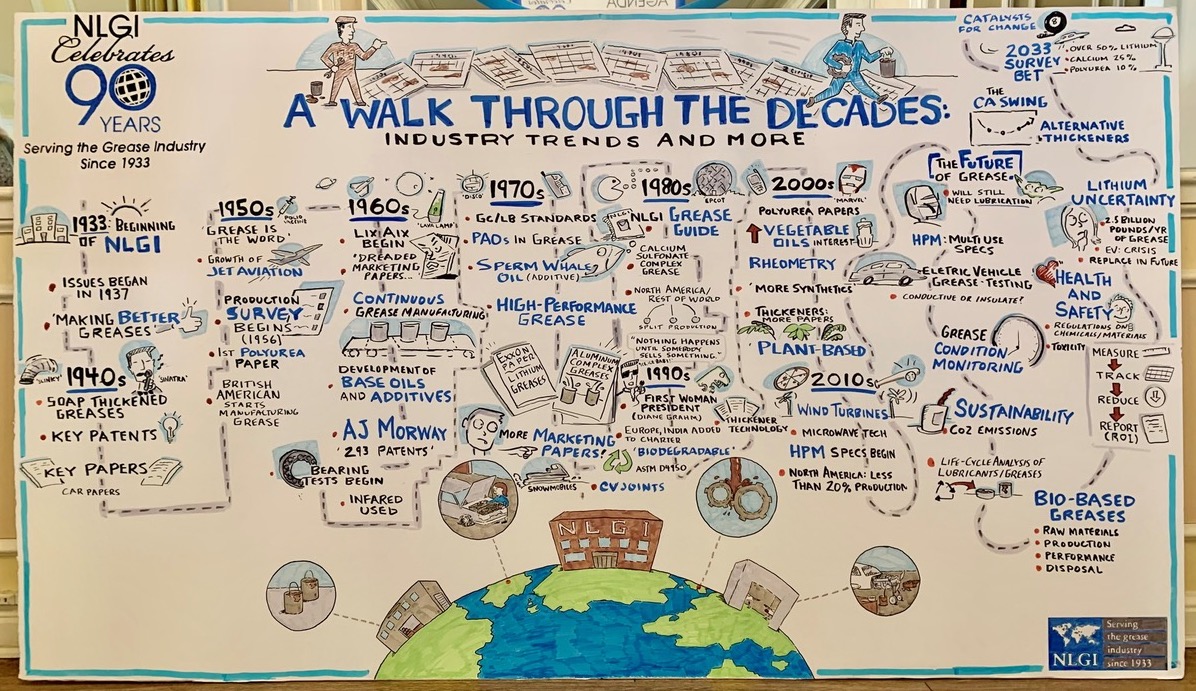 NLGI
Celebrates
90
YEARS
Serving the Grease Industry
Since 1933
A WALK THROUGH THE DECADES:
INDUSTRY TRENDS AND MORE
1933: BEGINNING
OF NLGI
ISSUES BEGAN
IN 1937
'MAKING BETTER
GREASES'
'SLINKY'
1940s
'SINATRA'
SOAP THICKENED
GREASES
KEY PATENTS
KEY PAPERS
CAR PAPERS
1950s
POLIO
VACCINE
'GREASE IS
THE WORD'
GROWTH OF
JET AVIATION
PRODUCTION
SURVEY
BEGINS
(1956)
1ST POLYUREA
PAPER
BRITISH
AMERICAN
STARTS
MANUFACTURING
GREASE
1960s
'LAVA LAMP'
LIX AIX
BEGIN
'DREADED
MARKETING
PAPERS...
CONTINUOUS
GREASE MANUFACTURING
DEVELOPMENT OF
BASE OILS
AND ADDITIVES
AJ MORWAY
'293 PATENTS'
BEARING
TESTS BEGIN
INFARED
USED
1970s
'DISCO'
GC/LB STANDARDS
PAOs IN GREASE
SPERM WHALE
OIL (ADDITIVE)
HIGH-PERFORMANCE
GREASE
EXXON
PAPER
LITHIUM
GREASES
ALUMINUM
COMPLEX
GREASES
MORE MARKETING
PAPERS!
SNOWMOBILES
1980s
EPCOT
NLGI
NLGI GREASE
GUIDE
CALCIUM
SULFONATE
COMPLEX
GREASE
NORTH AMERICA/
REST OF WORLD
SPLIT PRODUCTION
"NOTHING HAPPENS
UNTIL SOMEBODY
SELLS SOMETHING."
1990s
FIRST WOMAN
PRESIDENT
(DIANE GRAHM)
THICKENER
TECHNOLOGY
EUROPE, INDIA ADDED
TO CHARTER
'BIODEGRADABLE'
ASTM D4950
CV JOINTS
2000s
'MARVEL'
POLYUREA PAPERS
VEGETABLE
OILS INTEREST
RHEOMETRY
'MORE SYNTHETICS'
THICKENERS:
MORE PAPERS
PLANT-BASED
2010s
WIND TURBINES
MICROWAVE TECH
HPM SPECS BEGIN
NORTH AMERICA: LESS
THAN 20% PRODUCTION
THE FUTURE
OF GREASE
WILL STILL
NEED LUBRICATION
HPM: MULTI USE
SPECS
ELETRIC VEHICLE
GREASE TESTING
CONDUCTIVE OR INSULATE?
GREASE
CONDITION
MONITORING
SUSTAINABILITY
CO2 EMISSIONS
LIFE-CYCLE ANALYSIS OF
LUBRICANTS/GREASES
BIO-BASED
GREASES
RAW MATERIALS
PRODUCTION
PERFORMANCE
DISPOSAL
MEASURE
TRACK
REDUCE
REPORT
(ROI)
HEALTH
AND
SAFETY
REGULATIONS ON
CHEMICALS/MATERIALS
TOXICITY
LITHIUM
UNCERTAINTY
2.5 BILLION
POUNDS/YR
OF GREASE
EV: CRISIS
REPLACE IN FUTURE
ALTERNATIVE
THICKENERS
THE
CA SWING
CATALYSTS
FOR CHANGE
8
2033
SURVEY
BET
OVER 50% LITHIUM
CALCIUM 25%
POLYUREA 10%
NLGI
NLGI
Serving
the grease
industry
since 1933